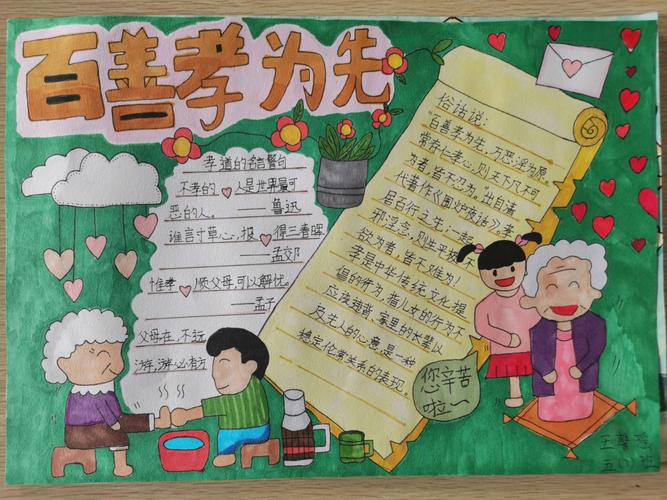 百善孝为先
孝道的名言警句
不孝的 人是世界最可
恶的人。 鲁迅
谁言寸草心,报 得三春晖
——孟郊
惟孝 顺父母,可以解忧。
——孟子
父母在,不远
游,游必有方
俗话说:
"百善孝为先,万恶淫为原
常存仁孝心,则天下凡不可
为者,皆不忍为"出自清
代著作《围炉夜话》。孝
居百行之先;一起
邪淫念,则生平极不
欲为者,皆不难为!
孝是中华传统文化提
倡的行为,指儿女的行为不
应该违背 家里的长辈以
及先人的心意是一种
稳定伦常关系的表现。
您辛苦
啦~